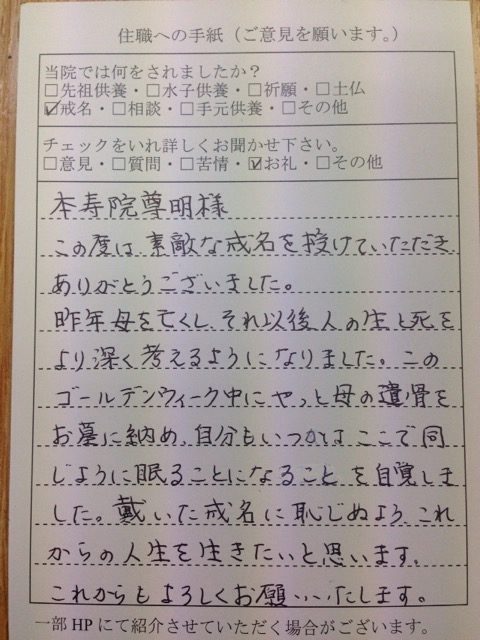 住職への手紙（ご意見を願います。）
当院では何をされましたか？
□先祖供養・□水子供養・□祈願・□土仏
☑戒名・□相談・□手元供養・□その他
チェックをいれ詳しくお聞かせ下さい。
□意見・□質問・□苦情・☑お礼・□その他
本寿院尊明様
この度は、素敵な戒名を授けていただき
ありがとうございました。
昨年母を亡くし、それ以後人の生と死を
より深く考えるようになりました。この
ゴールデンウィーク中にやっと母の遺骨を
お墓に納め、自分もいつかはここで同
じように眠ることになることを自覚しま
した。戴いた戒名に恥じぬよう、これ
からの人生を生きたいと思います。
これからもよろしくお願いいたします。
一部 HP にて紹介させていただく場合がございます。